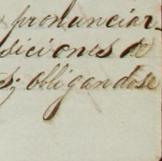 pronunciar-
diciones de
s; obligandose